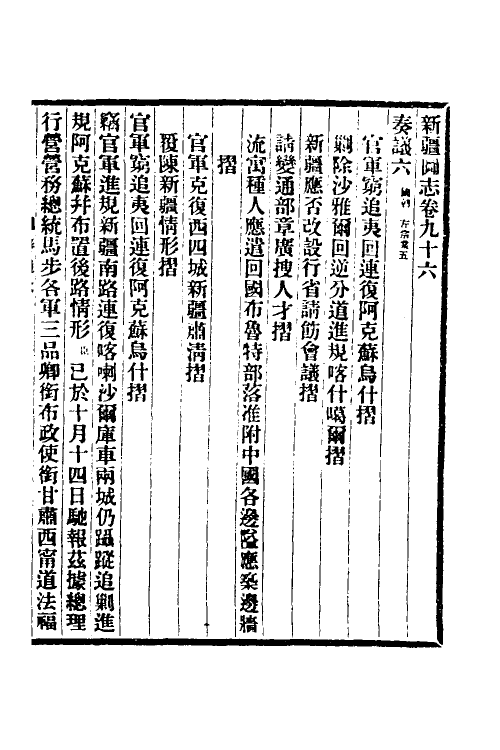 新疆圖志卷九十六
奏議六 國朝 左宗棠五
官軍窮追夷回連復阿克蘇烏什摺
剿除沙雅爾回逆分道進規喀什噶爾摺
新疆應否改設行省請飭會議摺
請變通部章廣搜人才摺
流寓種人應遣回國布魯特部落准附中國各邊隘應築邊牆
摺
官軍克復西四城新疆肅清摺
覆陳新疆情形摺
官軍窮追夷回連復阿克蘇烏什摺
竊官軍進規新疆南路連復喀喇沙爾庫車兩城仍躡蹤追剿進
規阿克蘇幷布置後路情形臣已於十月十四日馳報茲據總理
行營營務總統馬步各軍三品卿銜布政使銜甘肅西甯道法福